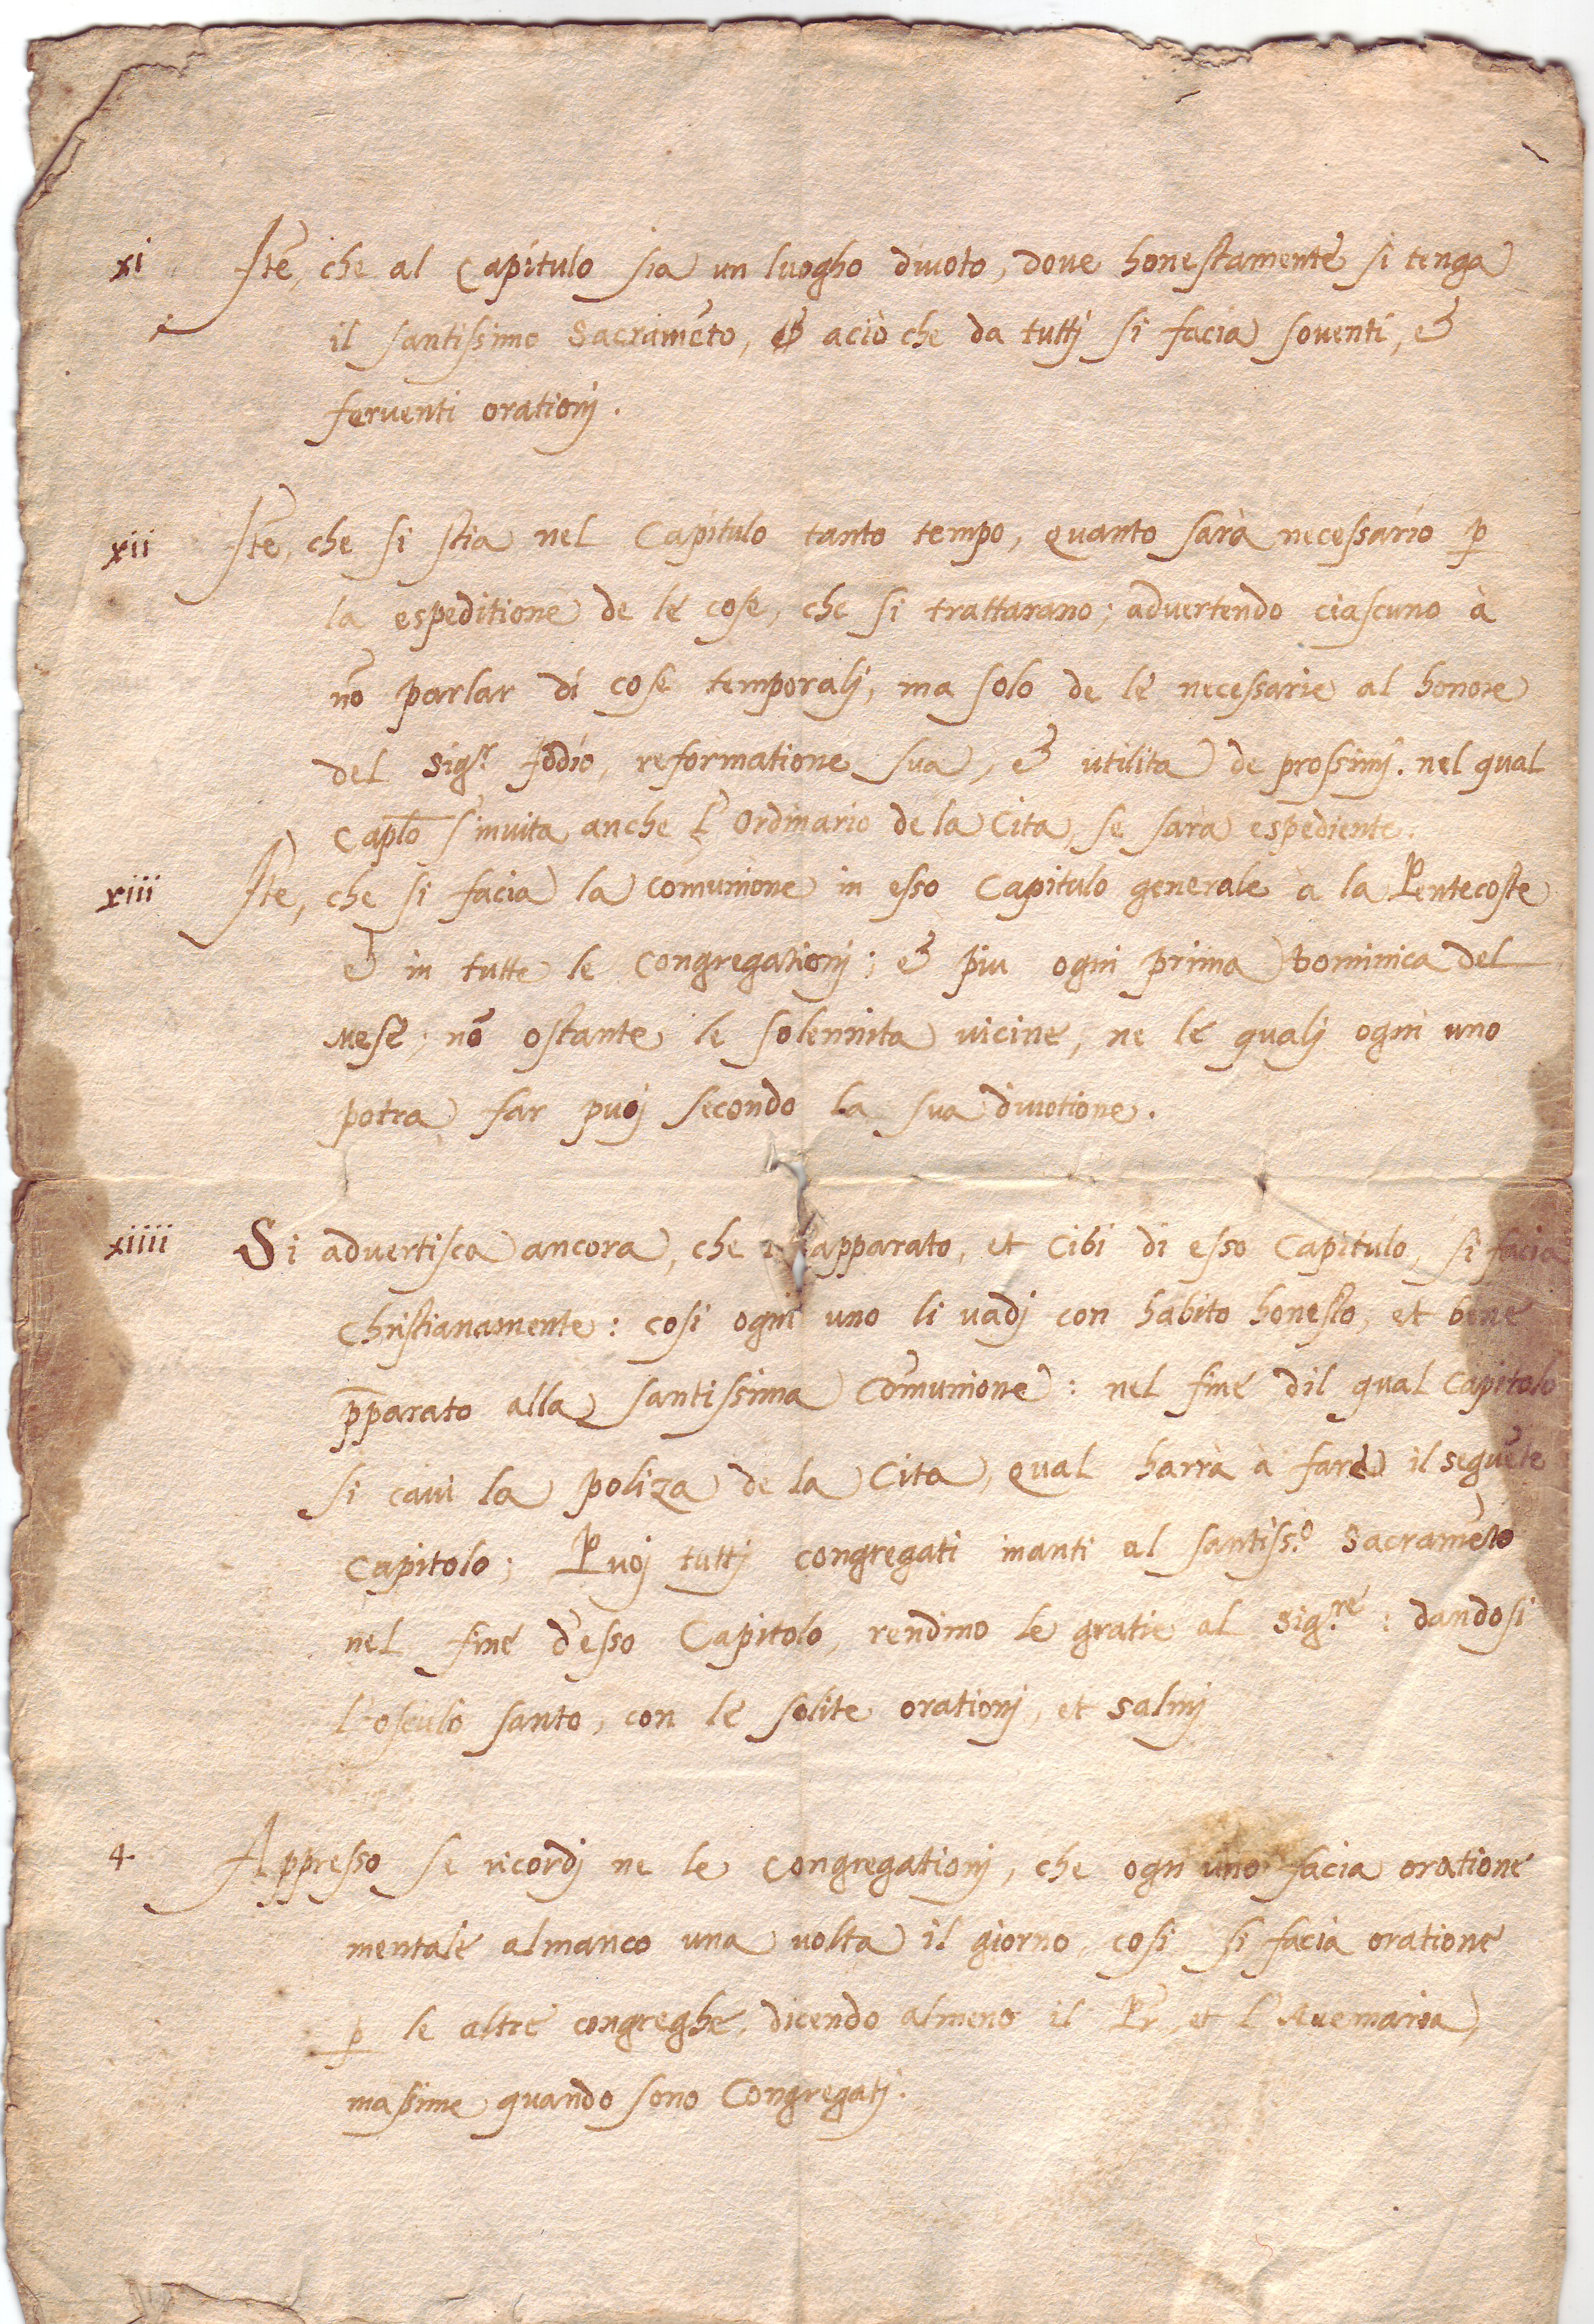 xi Itē, che al Capitulo sia un luogho divoto, dove honestamente si tenga
il santissimo Sacramēto, & aciò che da tuttj si facia soventi, et
ferventi orationj.
xii Itē, che si stia nel Capitulo tanto tempo, quanto sarà necessario p̲
la espeditione de le cose, che si trattarano; advertendo ciascuno à
nō parlar di cose temporalj, ma solo de le necessarie al honore
del Sig.r Iddio, reformatione sua, et utilita de prossimj. nel qual
Caplō s'invita anche l'Ordinario de la Cita, se sara espediente.
xiii Itē, che si facia la comunione in esso Capitulo generale à la Pentecoste
et in tutte le Congregationj; et piu ogni prima Dominica del
Mese; nō ostante le solennita vicine, ne le qualj ogni uno
potra far puoj secondo la sua divotione.
xiiii Si advertisca ancora, che apparato, et Cibi di esso Capitulo, si facia
Christianamente: cosi ogni uno li vadj con habito honesto, et bene
p̄parato alla santissima Cōmunione: nel fine dil qual Capitolo
si cavi la poliza de la Cita, qual harrà à fare il seguēte
Capitolo; Puoj tuttj congregati inanti al santiss.o Sacramēto
nel fine d'esso Capitolo, rendino le gratie al Sig.re: dandosi
l'osculo santo, con le solite orationj, et Salmj
4. Appresso se ricordj ne le Congregationj, che ogn uno facia oratione
mentale almanco una volta il giorno, cosi si facia oratione
p̲ le altre congreghe, dicendo almeno il Pr̄, et l'Avemaria,
massime quando sono Congregatj.